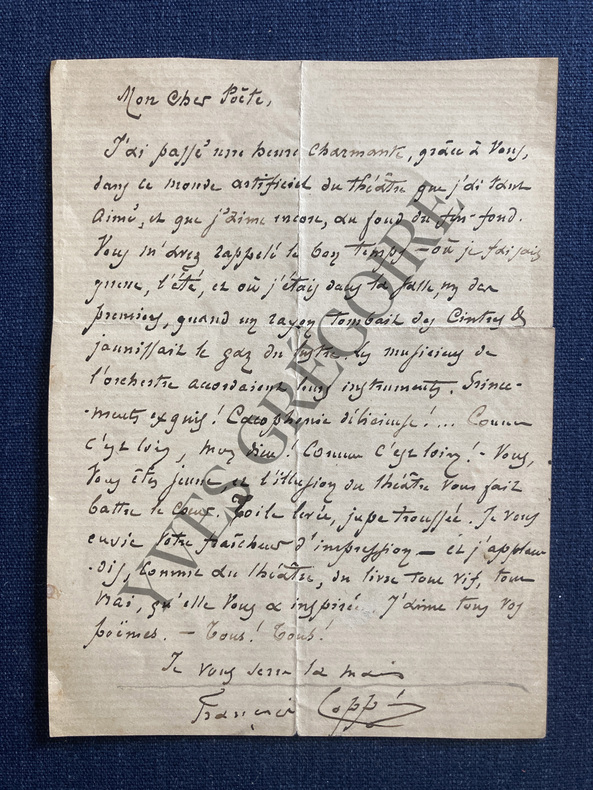 Mon Cher Poëte,
J'ai passé une heure charmante, grâce à Vous,
dans ce monde artificiel du théâtre que j'ai tant
aimé, et que j'aime encore, au fond du fin-fond.
Vous m'avez rappelé le bon temps — où je faisais
queue, l'été, et où j'étais dans la salle, un des
premiers, quand un rayon tombait des Cintres &
jaunissait le gaz du lustre. Les musiciens de
l'orchestre accordaient leurs instruments. Grince-
-ments exquis! Cacophonie délicieuse!... Comme
c'est loin, mon Dieu! Comme c'est loin! - Vous,
Vous êtes jeune et l'illusion du théâtre vous fait
battre le Cœur. Toile levée, jupe troussée. Je vous
envie votre fraîcheur d'impression — et j'applau-
-dis, comme au théâtre, au livre tout vif, tout
vrai, qu'elle vous a inspiré. J'aime tous vos
poëmes. — Tous! Tous!
Je vous serre la main
François Coppée
YVES GRÉGOIRE